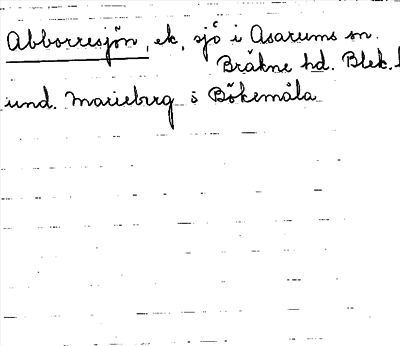 Abborresjön, ek, sjö i Asarums sn.
Bräkne hd. Blek.
und. Marieberg s Bökemåla